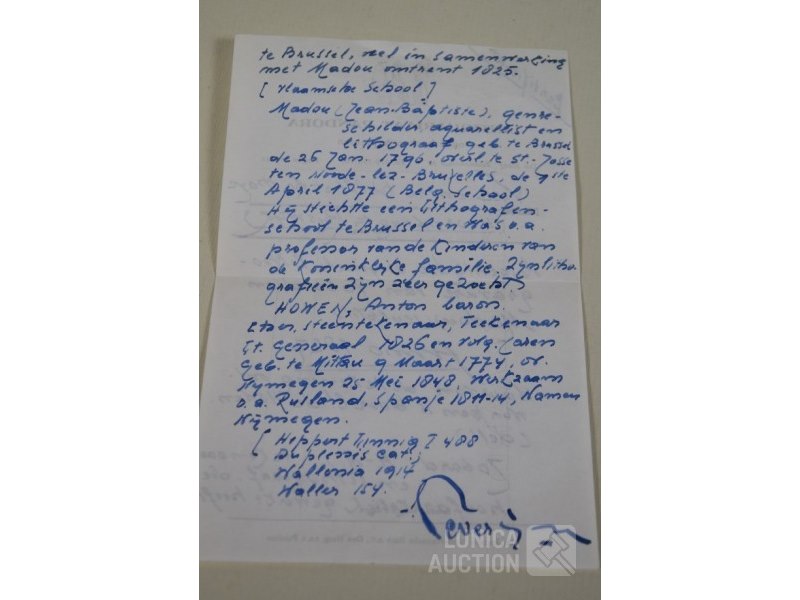 te Brussel, veel in samenwerking
met Madou omtrent 1825.
[ Vlaamsche School ]
Madou (Jean Baptiste), genre-
schilder, aquarellist en
lithograaf, geb. te Brussel
de 26 Jan. 1796, overl. te St. Josse
ten Noode-lez-Bruxelles, de
April 1877 (Belg. School)
Hij stichtte een Lithografen-
school te Brussel en was o.a.
professor van de Kinderen van
de Koninklijke familie. Zijn litho-
grafieën zijn zeer gezocht.
HOWEN, Anton baron.
Etser, steentekenaar, Teekenaar
Lt. Generaal 1826 en volg. jaren
Geb. te Mittau 9 Maart 1774, ov.
Nymegen 25 Mei 1848, Werkzaam
o.a. Rusland, Spanje 1811-14, Namen
Nijmegen.
[ Hippert Linnig I 488
Duplessis Cat.
Wallonia 1914
Waller 154.
LUNICA
AUCTION